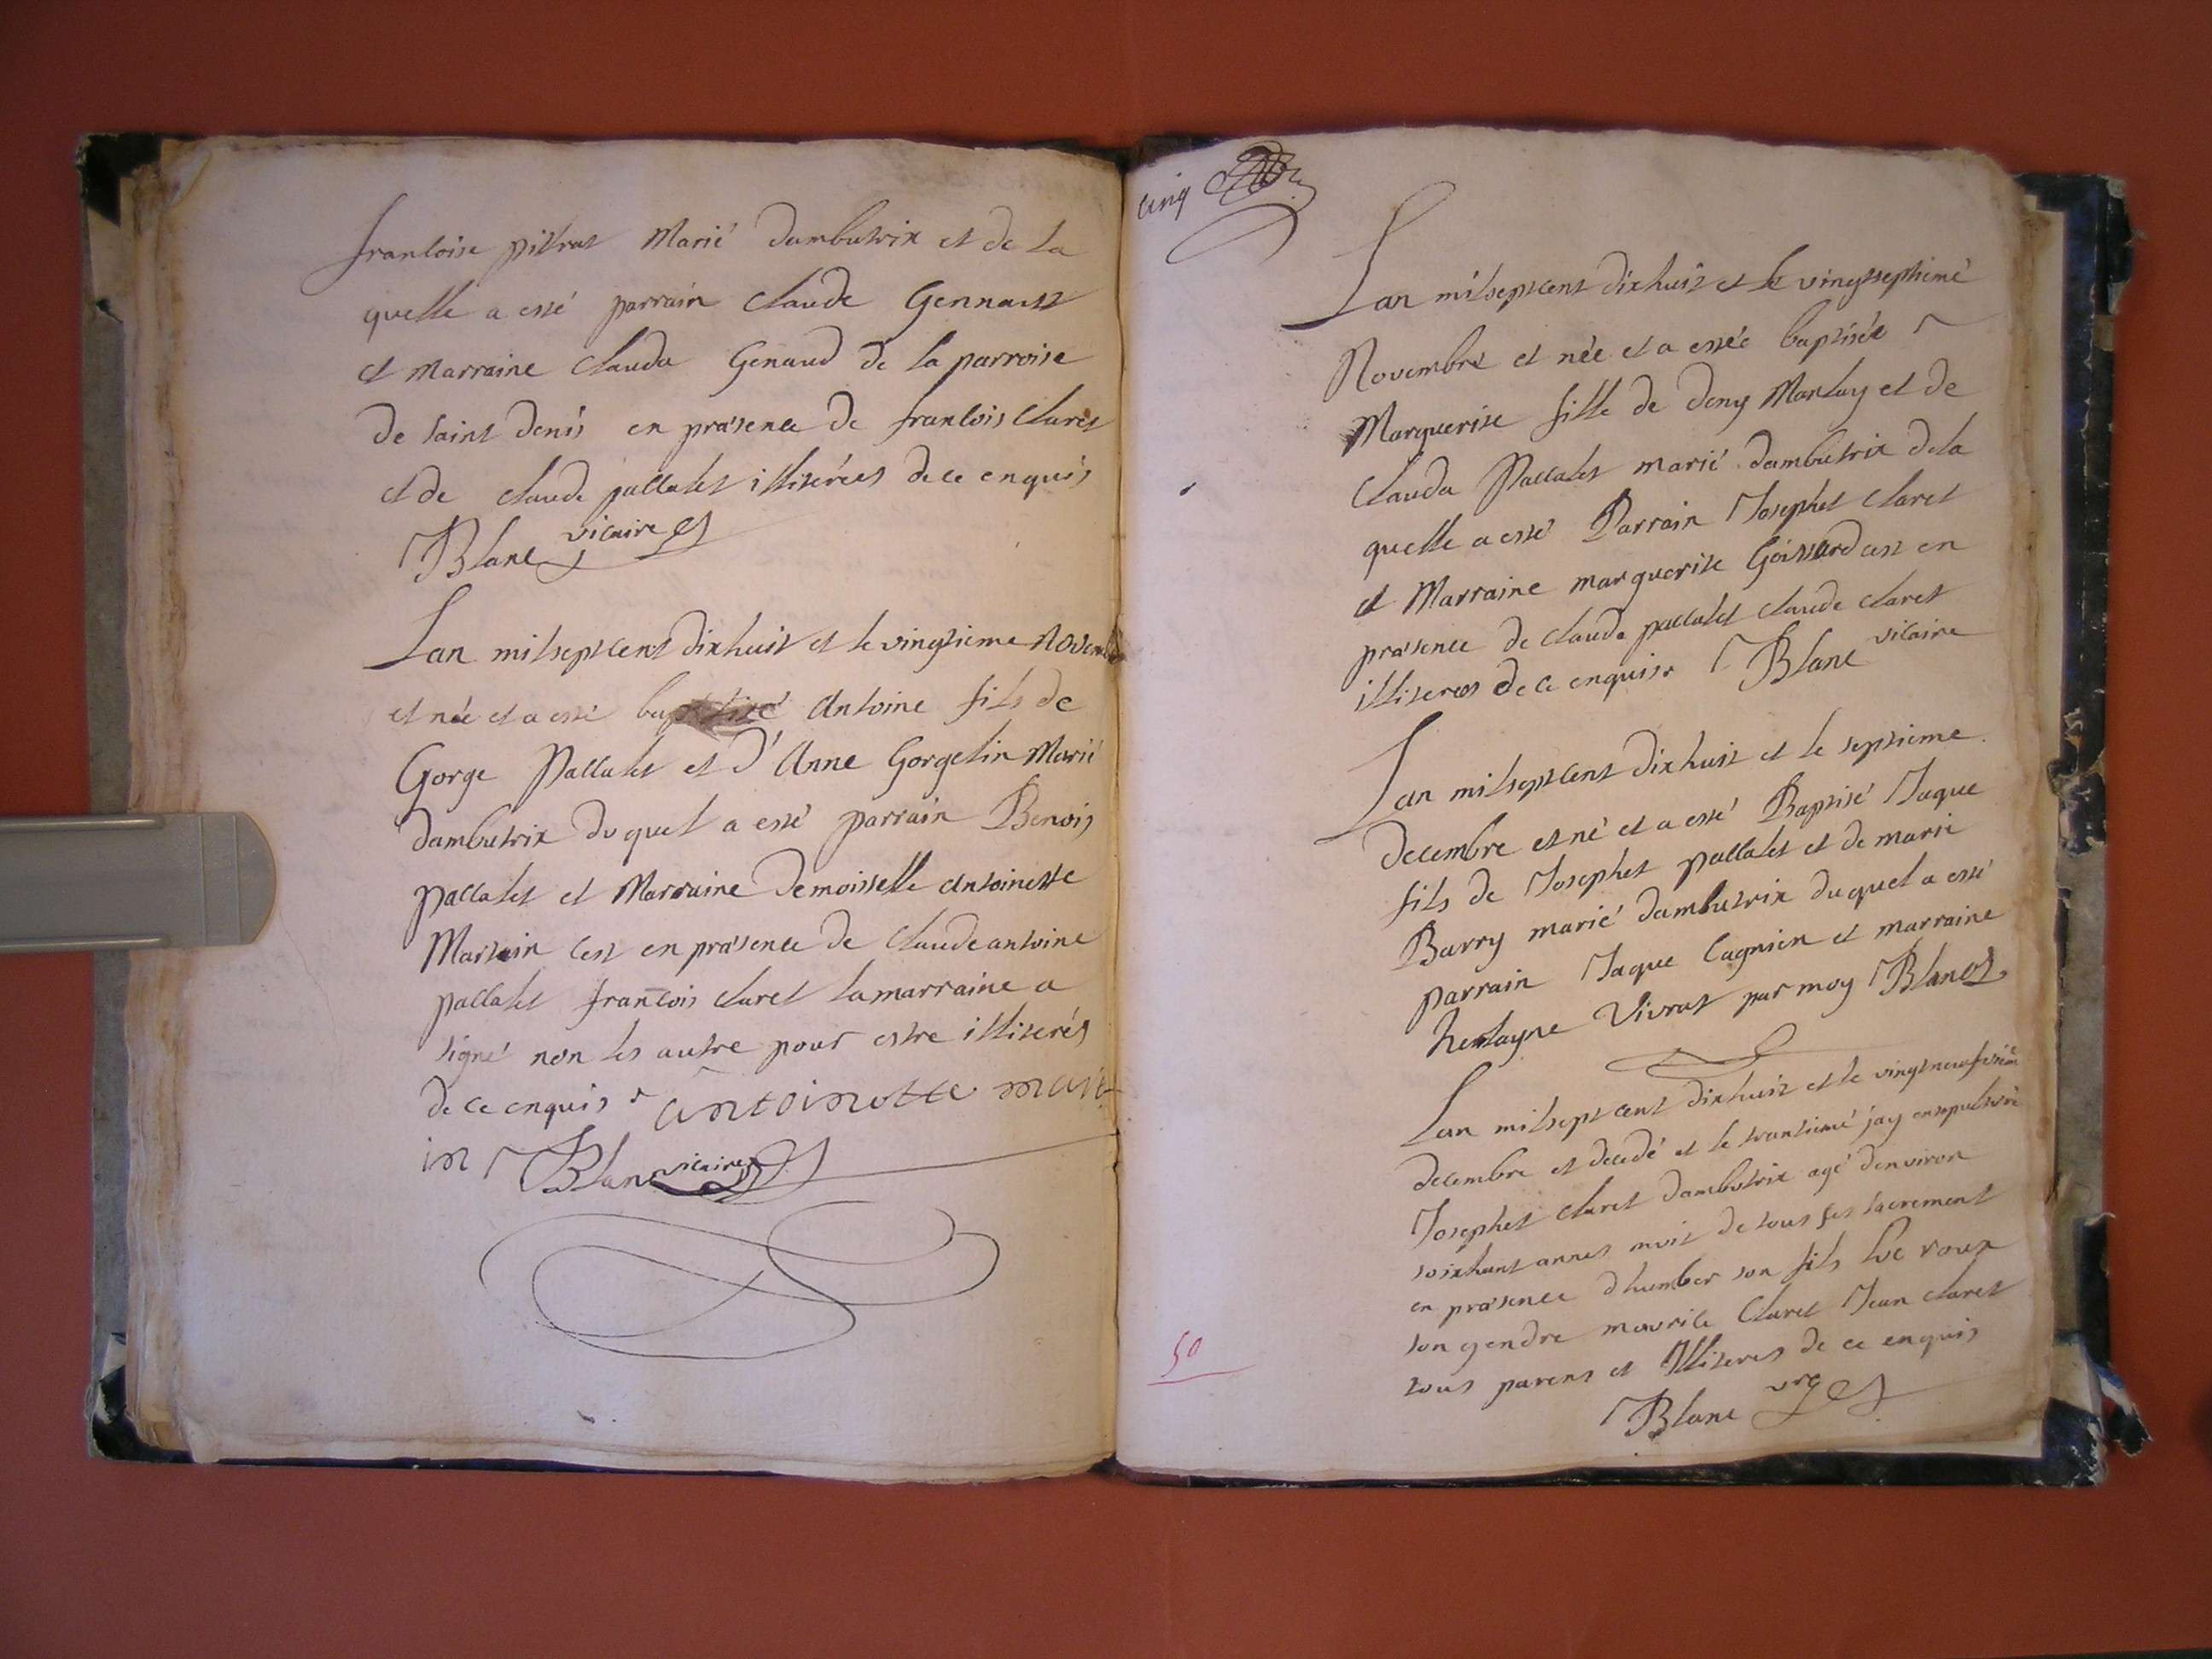 francoise pitrat Marié dambutrix et de la
quelle a esté parrain Claude Gennaust
et marraine Clauda Genaud de la parroise
de saint denis en præsence de francois Claret
et de Claude pallatet illiterées de ce enquis
Blanc vicaire
Lan milseptcent dixhuit et le vingtieme Novemb
et née et a esté baptisé Antoine fils de
Gorge Pallatet et d'Anne Gorgelin Marié
dambutrix duquel a esté parrain Benois
pallatet et Marraine Demoisselle Antoinette
Martain cest en præsence de Claudeantoine
pallatet francois Claret la marraine a
signé non les autre pour estre illiterés
de ce enquis r antoinette mart
in Blanc vicaire
cinq
Lan milseptcent dixhuit et le vingtseptiemé
Novembre et née et a estée baptisée
Marguerite fille de deny Marlay et de
Clauda Pallatet marié dambutrix dela
quelle a esté Parrain Josephet Claret
et Marraine marguerite Goissard cest en
præsence de Clauda pallatet Claude Claret
illiterees de ce enquis r Blanc vicaire
Lan milseptcent dixhuit et le septieme
decembre et né et a esté Baptisé Jaque
fils de Josephet pallatet et de marie
Barry marié dambutrix duquel a esté
parrain Jaque Cagnien et marraine
Vivrat par moy Blanc
Lan milsept cent dixhuit et le vingtneufvieme
decembre et decedé et le trantiemé jay ensepulturé
Josephet Claret dambutrix agé denviron
soixhant annes muit de tous ses sacrement
en præsence dhumber son fils Luc roux
son gendre maurile Claret Jean Claret
tous parens et Illiteres de ce enquis
Blanc vre
50